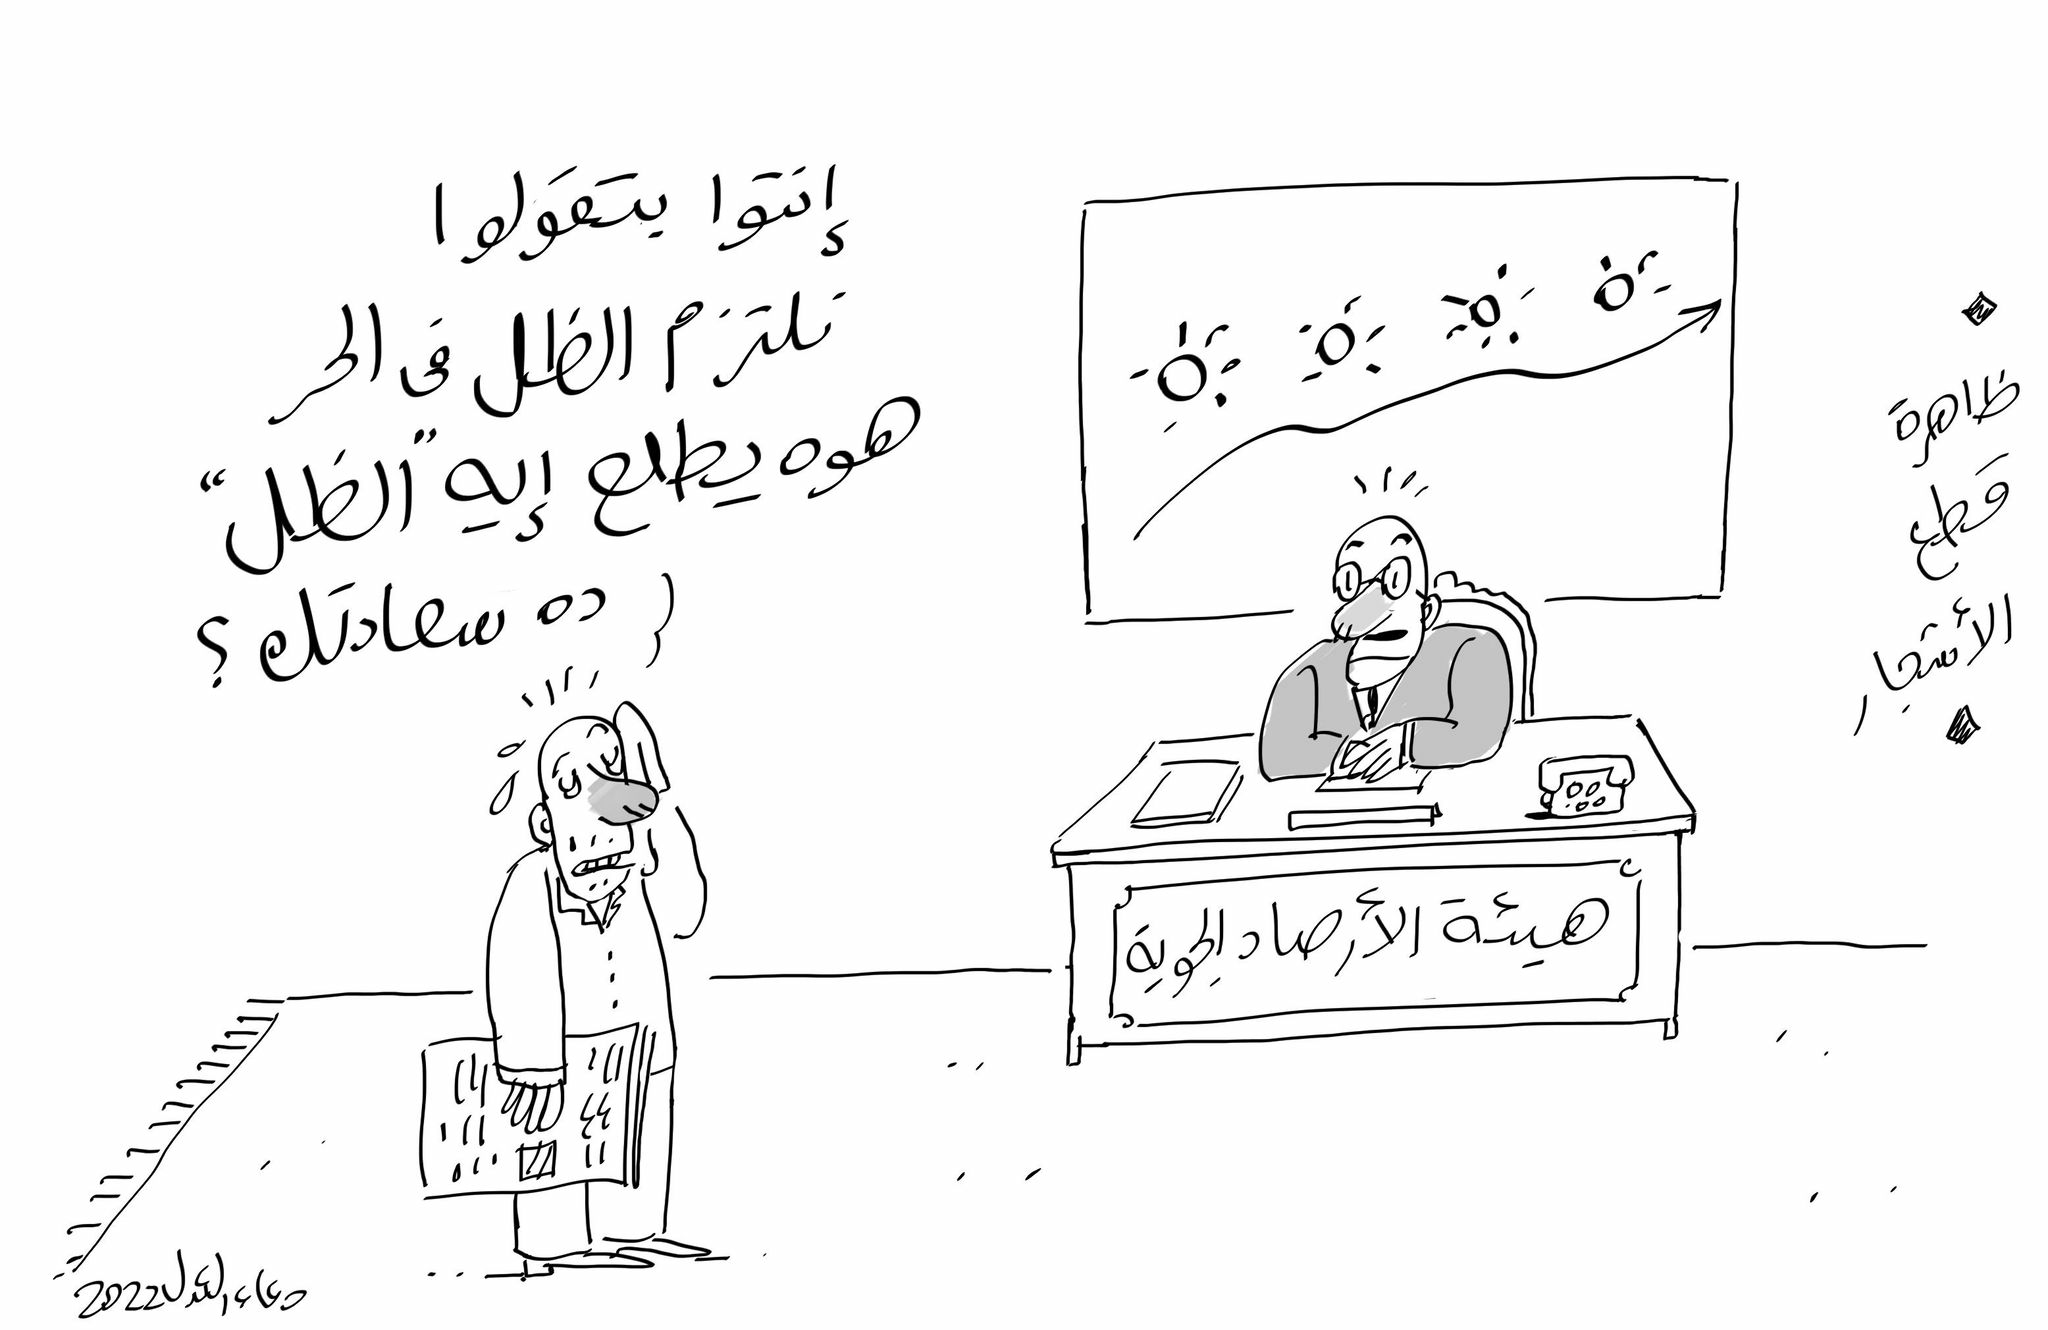 ظاهرة
قطع
الأشجار
إنتوا بتقولوا
نلتزم الظل فى الحر
هوه يطلع إيه "الظل"
ده سعادتك ؟
هيئة الأرصاد الجوية
دعاء العدل 2022